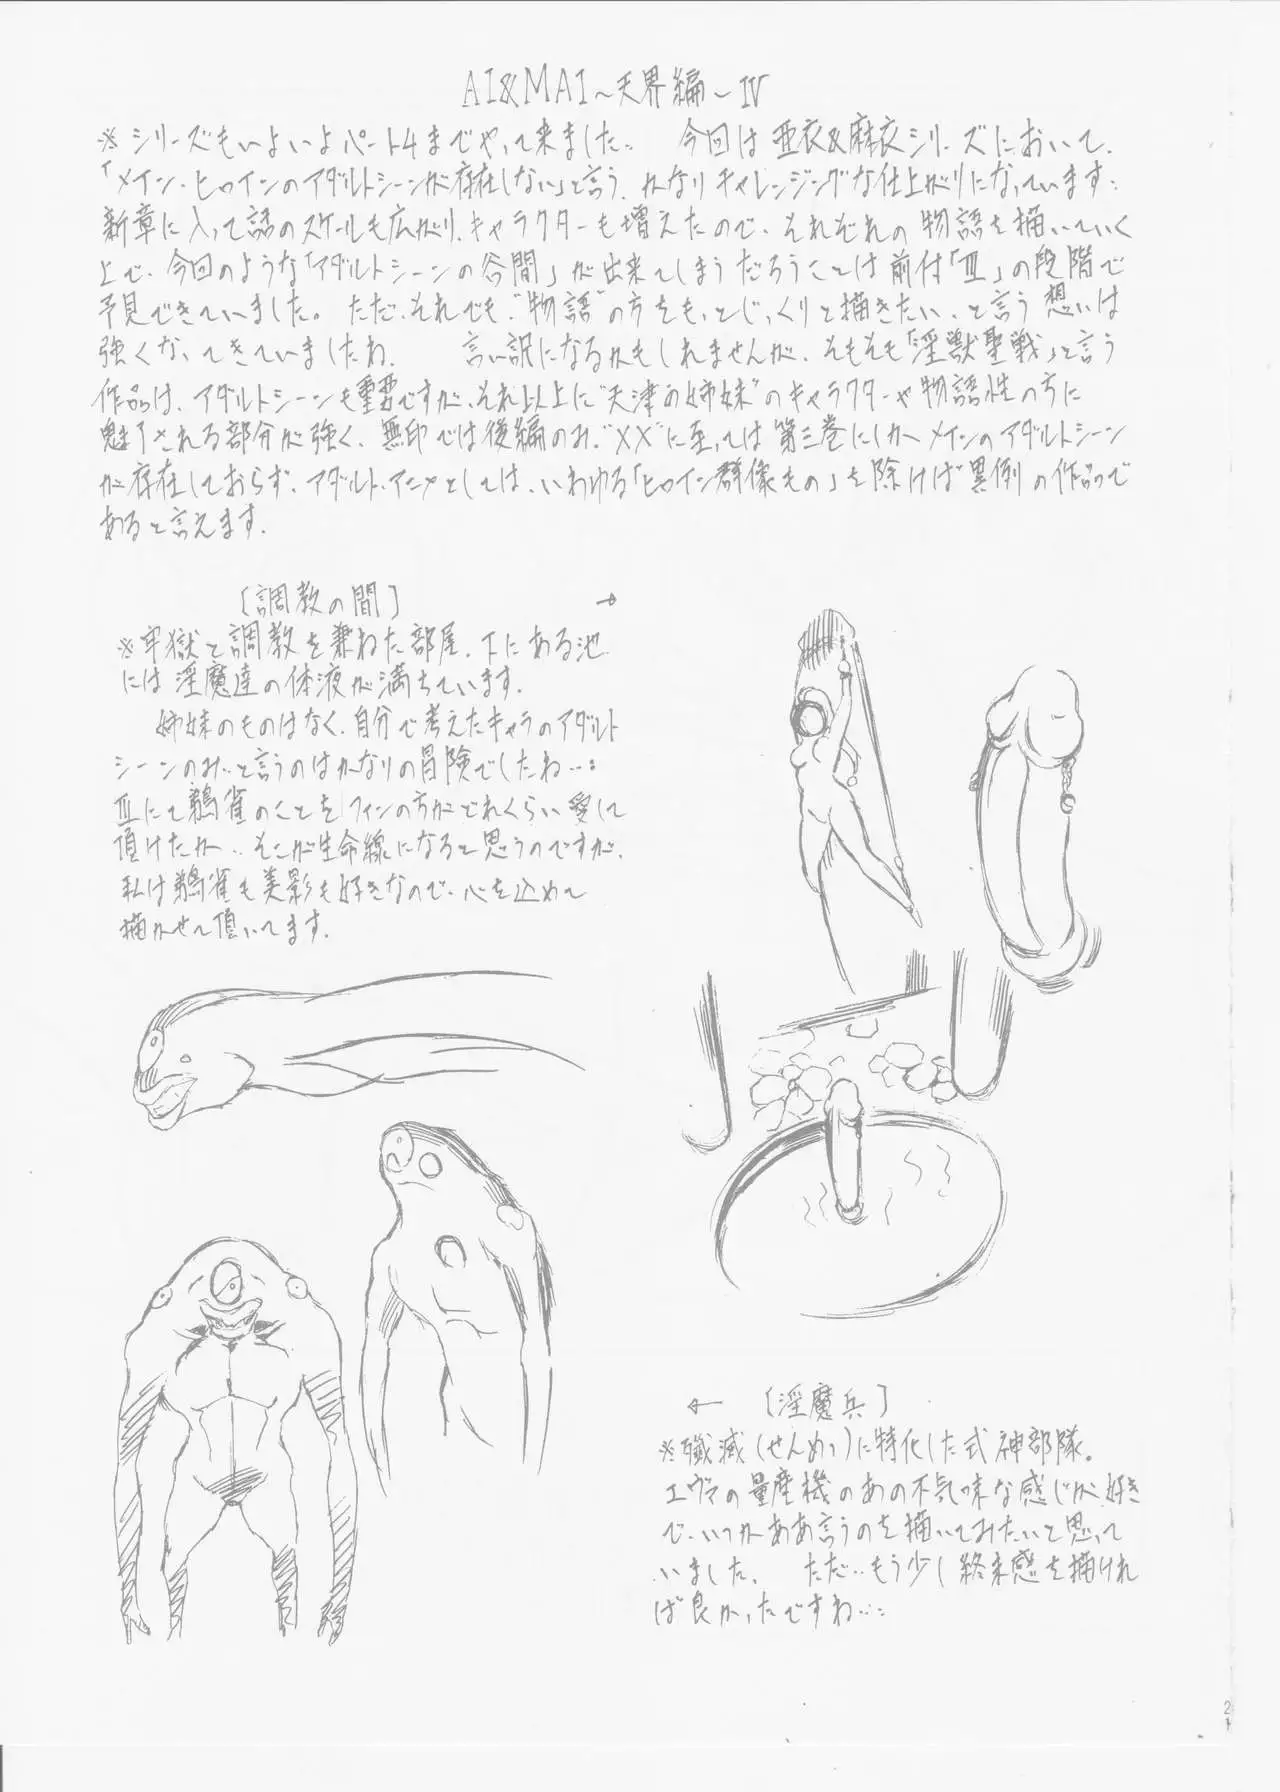 AI&MAI～天界編～Ⅳ
※シリーズもいよいよパート4までやって来ました。 今回は亜衣&麻衣シリーズにおいて、
「メイン・ヒロインのアダルトシーンが存在しない」と言う、かなりチャレンジングな仕上がりになっています…
新章に入って話のスケールも広がり、キャラクターも増えたので、それぞれの物語を描いていく
上で、今回のような「アダルトシーンの谷間」が出来てしまうだろうことは前付「Ⅲ」の段階で
予見できていました。 ただ、それでも“物語”の方をもっとじっくりと描きたい、と言う想いは
強くなってきていましたね。 言い訳になるかもしれませんが、そもそも「淫獣聖戦」と言う
作品は、アダルトシーンも重要ですが、それ以上に“天津の姉妹”のキャラクターや物語性の方に
魅了される部分が強く、無印では後編のみ、“XX”に至っては第三巻にしかメインのアダルトシーン
が存在しておらず、アダルト・アニメとしては、いわゆる「ヒロイン群像もの」を除けば異例の作品で
あると言えます。
〔調教の間〕 →
※牢獄と調教を兼ねた部屋。下にある池
には淫魔達の体液が満ちています。
姉妹のものはなく、自分で考えたキャラのアダルト
シーンのみ…と言うのはかなりの冒険でしたね…。
Ⅲにて鵺雀のことをファンの方がどれくらい愛して
頂けたか…そこが生命線になると思うのですが、
私は鵺雀も美影も好きなので、心を込めて
描かせて頂いてます。
← 〔淫魔兵〕
※殲滅(せんめつ)に特化した式神部隊。
エヴァの量産機のあの不気味な感じが好き
で、いつかああ言うのを描いてみたいと思って
いました。 ただ…もう少し終末感を描けれ
ば良かったですね…
21